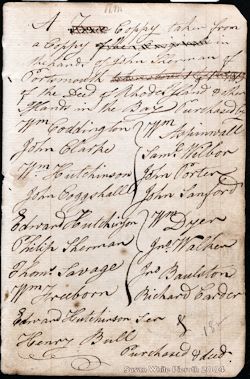 A True Coppy taken from
a Coppy
in the hands of John Sherman of
Portsmouth
of the deed of Rhode Island & other
Islands in the Bay Purchased by
Wm Coddington Wm Aspinwall
John Clarke Saml Wilbor
Wm Hutchinson John Porter
John Coggshall John Sanford
Edward Hutchinson Wm Dyer
Philip Sherman Jno Walker
Thoms Savage Jno Baulston
Wm Freeborn Richard Carder
Edward Hutchinson Ser
Henry Bull
Purchasd & ded
Susan White Pieroth 2004